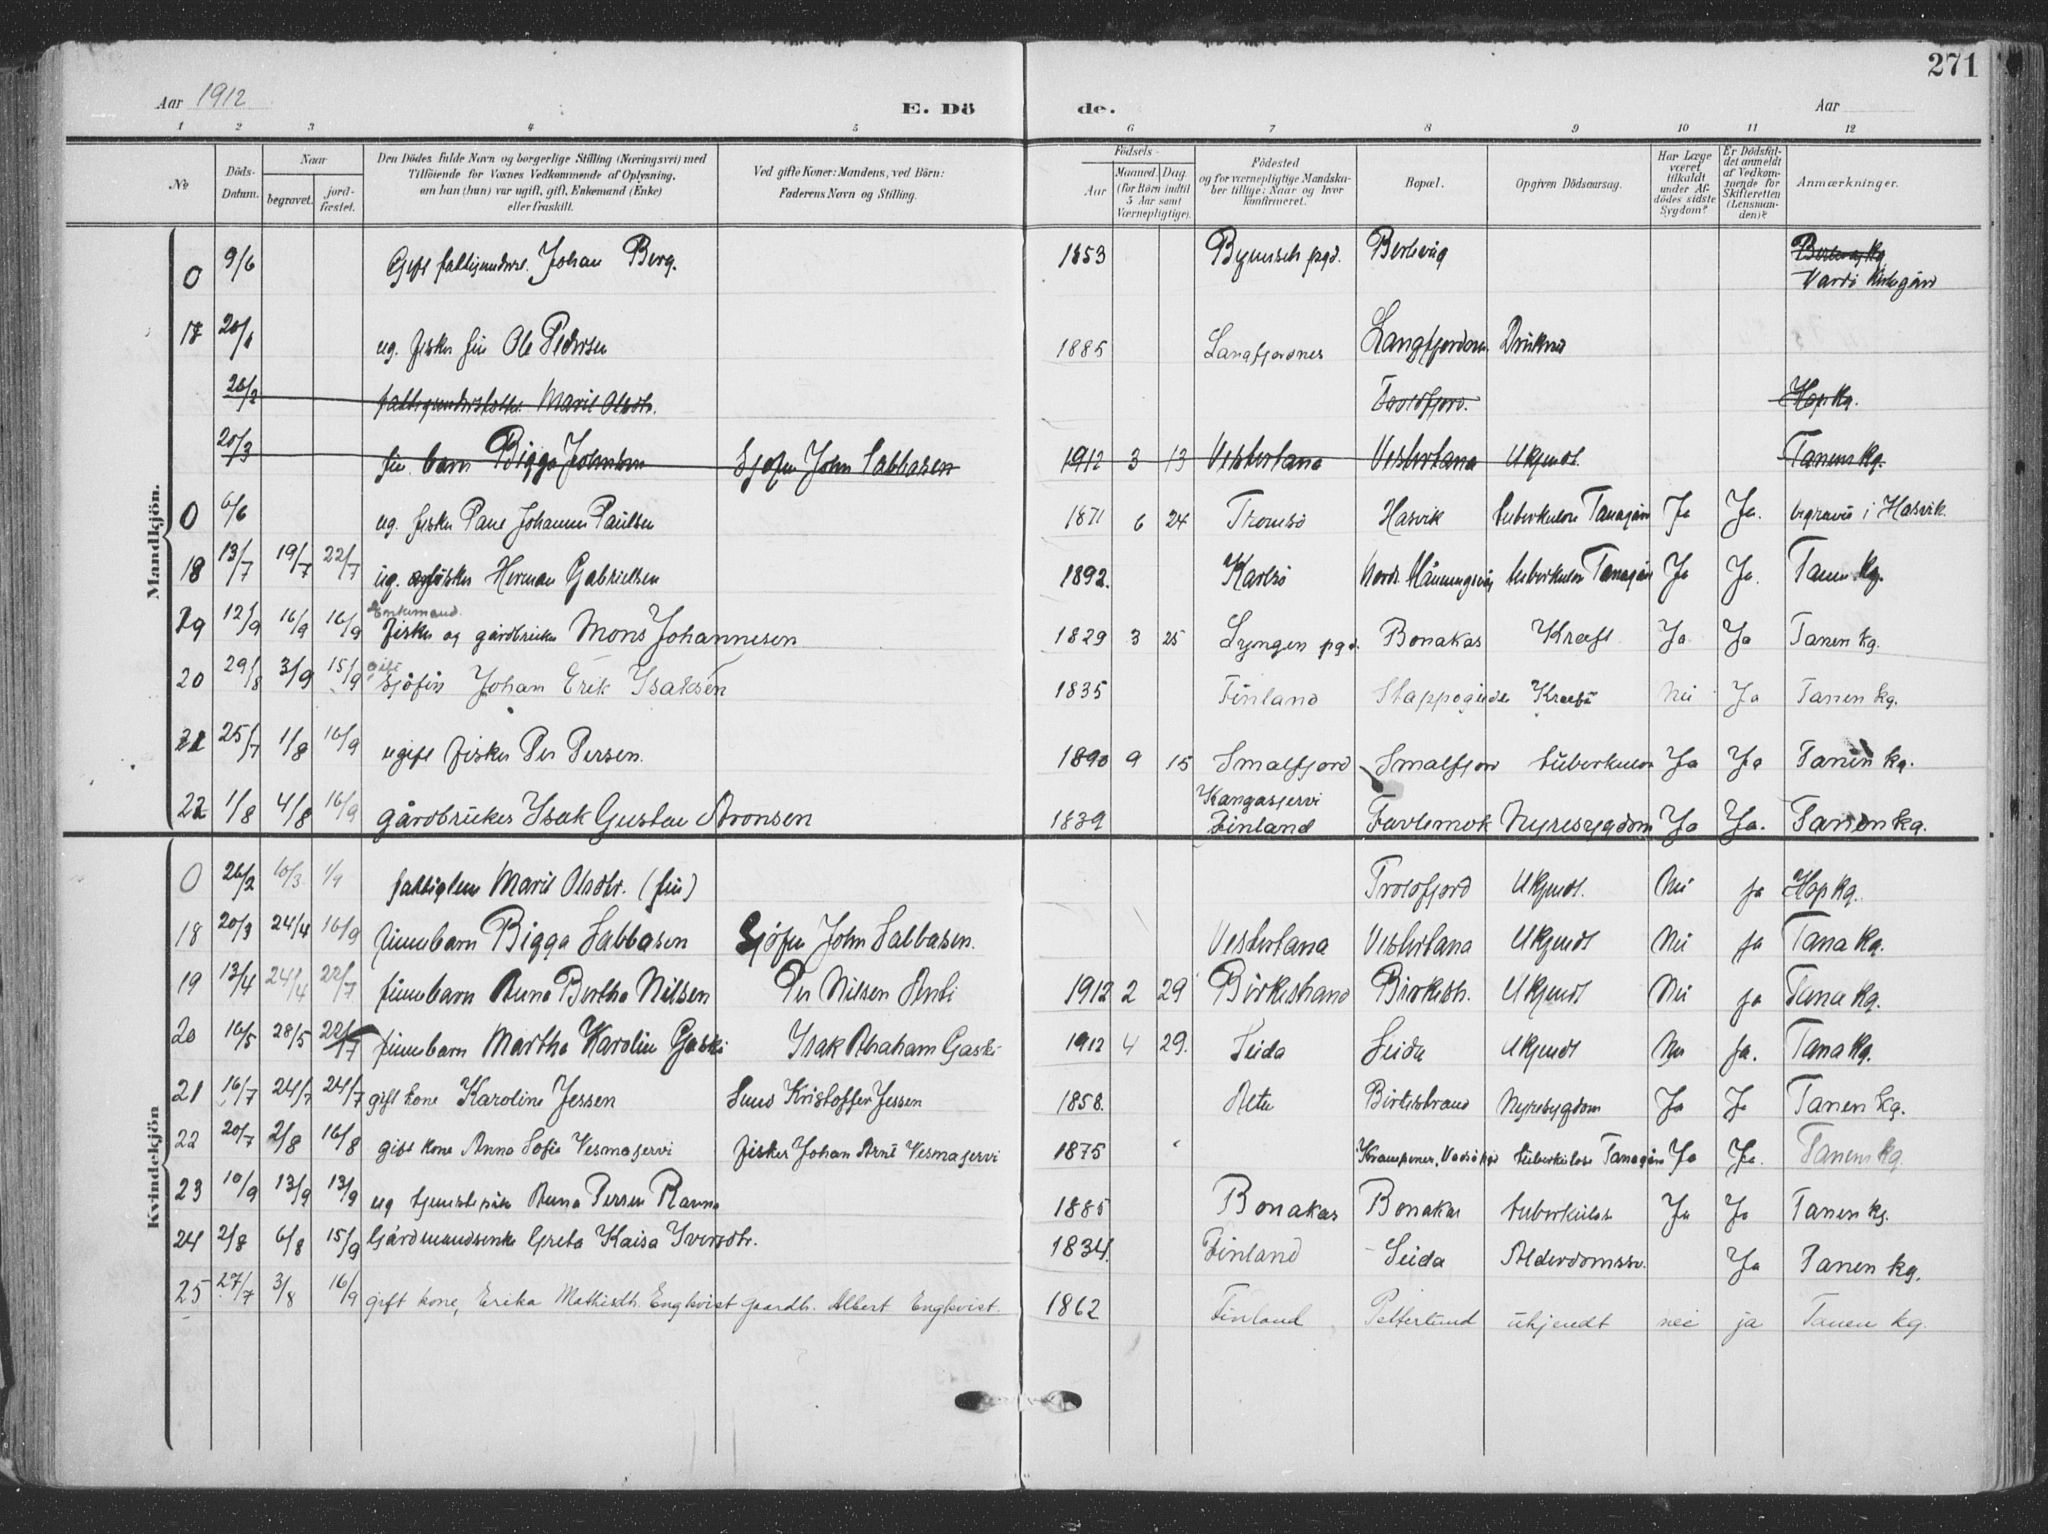 271
Aar 1912
E. Dö de.
Aar
1 2 3 4 5 6 7 8 9 10 11 12
No
Döds-Datum.
Naar
begravet.
jord-fæstet.
Den Dödes fulde Navn og borgerlige Stilling (Næringsvei) med
Tilföiende for Voxnes Vedkommende af Oplysning,
om han (hun) var ugift, gift, Enkemand (Enke)
eller fraskilt.
Ved gifte Koner: Mandens, ved Börn:
Faderens Navn og Stilling.
Födsels-
Aar
Maaned. Dag.
(for Børn indtil
5 Aar samt
Værnepligtige).
Födested
og for værnepligtige Mandska-
ber tillige: Naar og hvor
konfirmeret.
Bopæl.
Opgiven Dödsaarsag.
Har Læge
været
tilkaldt
under Af-
dödes sidste
Sygdom?
Er Dödsfal-
det anmeldt
af Vedkom-
mende for
Skifteretten
(Lensman-
den)?
Anmærkninger.
Mandkjön.
0 9/6 Gift Johan Berg. 1853 pgd. Berlevåg Vardö
17 20/6 ug. fisker fin Ole Pedersen 1885 Langfjordnes Langfjorden Druknet
26/2 Marit Olsdtr. Trollfjord. Hop kg.
20/3 fin. barn Bigga Johnsen Sjöfin John Sabbasen 1912 3 13 Vestertana Vestertana Ukjendt. Tanens kg.
0 6/6 ug. fisker Johannes Paulsen 1871 6 24 Tromsö Hasvik tuberkulose Ja Ja. begravet i Hasvik
18 13/7 19/7 22/7 ug. fisker Herman Gabrielsen 1892. Karlsö tuberkulose Ja Ja. Tanen kg.
19 12/9 16/9 16/9 Enkemand. Fisker og gårdbruker Mons Johannesen 1829 3 25 Lyngen pgd. Bonakas Kræft. Ja. Ja Tanen kg.
20 29/8 3/9 15/9 gift Sjöfin Johan Erik Isaksen 1835 Finland Kræft Nei Ja Tanen kg.
21 25/7 1/8 16/9 ugift fisker Per Persen. 1890 9 15 Smalfjord Smalfjord tuberkulos Ja Ja Tanen kg.
22 1/8 4/8 16/9 gårdbruker Isak Gustav Aronsen 1839 Kangasjervi Finland Nyresygdom Ja Ja. Tanen kg.
Kvindekjön
0 26/2 10/3 1/9 Marit Olsdtr. (fin) Trollfjord Ukjendt. Nei ja Hop kg.
18 20/3 24/4 16/9 finnebarn Bigga Sabbasen Sjöfin John Sabbasen. Vestertana Vestertana Ukjendt Nei ja Tana kg.
19 13/4 24/4 22/7 finnebarn Anna Bertha Nilsen Per Nilsen 1912 2 29 Birkestrand Birkestr. Ukjendt Nei ja Tana kg.
20 16/5 28/5 22/7 finnebarn Martha Karoline Gaski Isak Abraham Gaski 1912 4 29. Seida Seida Ukjendt Nei ja. Tana kg.
21 16/7 24/7 24/7 gift kone Karoline Jessen Kristoffer Jessen 1858. Birkestrand Nyresygdom Ja Ja Tanen kg.
22 20/7 2/8 16/8 gift kone Anna Sofie Vesmajervi fisker Johan Arnt Vesmajervi 1875 tuberkulose Ja Ja. Tanens kg.
23 10/9 13/9 13/9 ug tjenestepike Anna Persen Ravna 1885 Bonakas Bonakas tuberkulose Ja Ja Tanen kg.
24 2/8 6/8 15/9 Gårdmandsenke Greta Kaisa 1834. Finland Seida Alderdomssv. Ja Tanen kg.
25 27/7 3/8 16/9 gift kone, Erika Mathisdtr. Engkvist gaardb. Albert Engkvist. 1862 Finland Polterlund ukjendt nei ja Tanen kg.